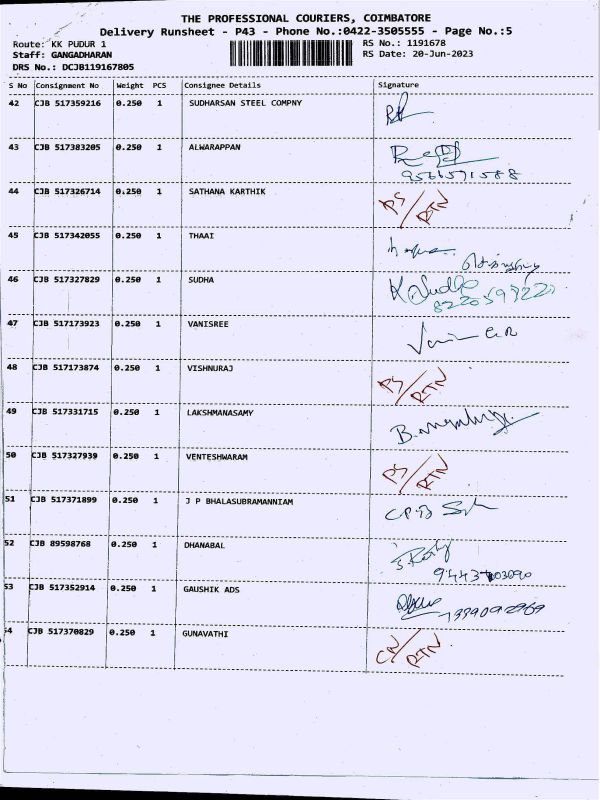 THE PROFESSIONAL COURIERS, COIMBATORE
Delivery Runsheet - P43 - Phone No.:0422-3505555 - Page No.:5
Route: KK PUDUR 1 RS No.: 1191678
Staff: GANGADHARAN RS Date: 20-Jun-2023
DRS No.: DCJB119167805
S No Consignment No Weight PCS Consignee Details Signature
42 CJB 517359216 0.250 1 SUDHARSAN STEEL COMPNY
43 CJB 517383205 0.250 1 ALWARAPPAN
9566571588
44 CJB 517326714 0.250 1 SATHANA KARTHIK PS/RTN
45 CJB 517342055 0.250 1 THAAI
46 CJB 517327829 0.250 1 SUDHA K Sudha
47 CJB 517173923 0.250 1 VANISREE
48 CJB 517173874 0.250 1 VISHNURAJ PS/RTN
49 CJB 517331715 0.250 1 LAKSHMANASAMY
50 CJB 517327939 0.250 1 VENTESHWARAM PS/RTN
51 CJB 517371899 0.250 1 J P BHALASUBRAMANNIAM
52 CJB 89598768 0.250 1 DHANABAL
53 CJB 517352914 0.250 1 GAUSHIK ADS
54 CJB 517370829 0.250 1 GUNAVATHI CN/RTN